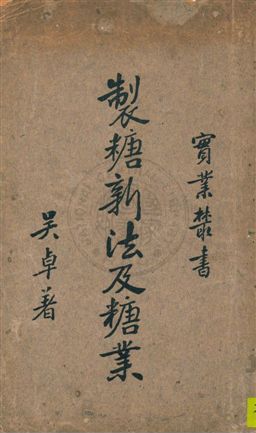 實業叢書
製糖新法及糖業
吳卓著